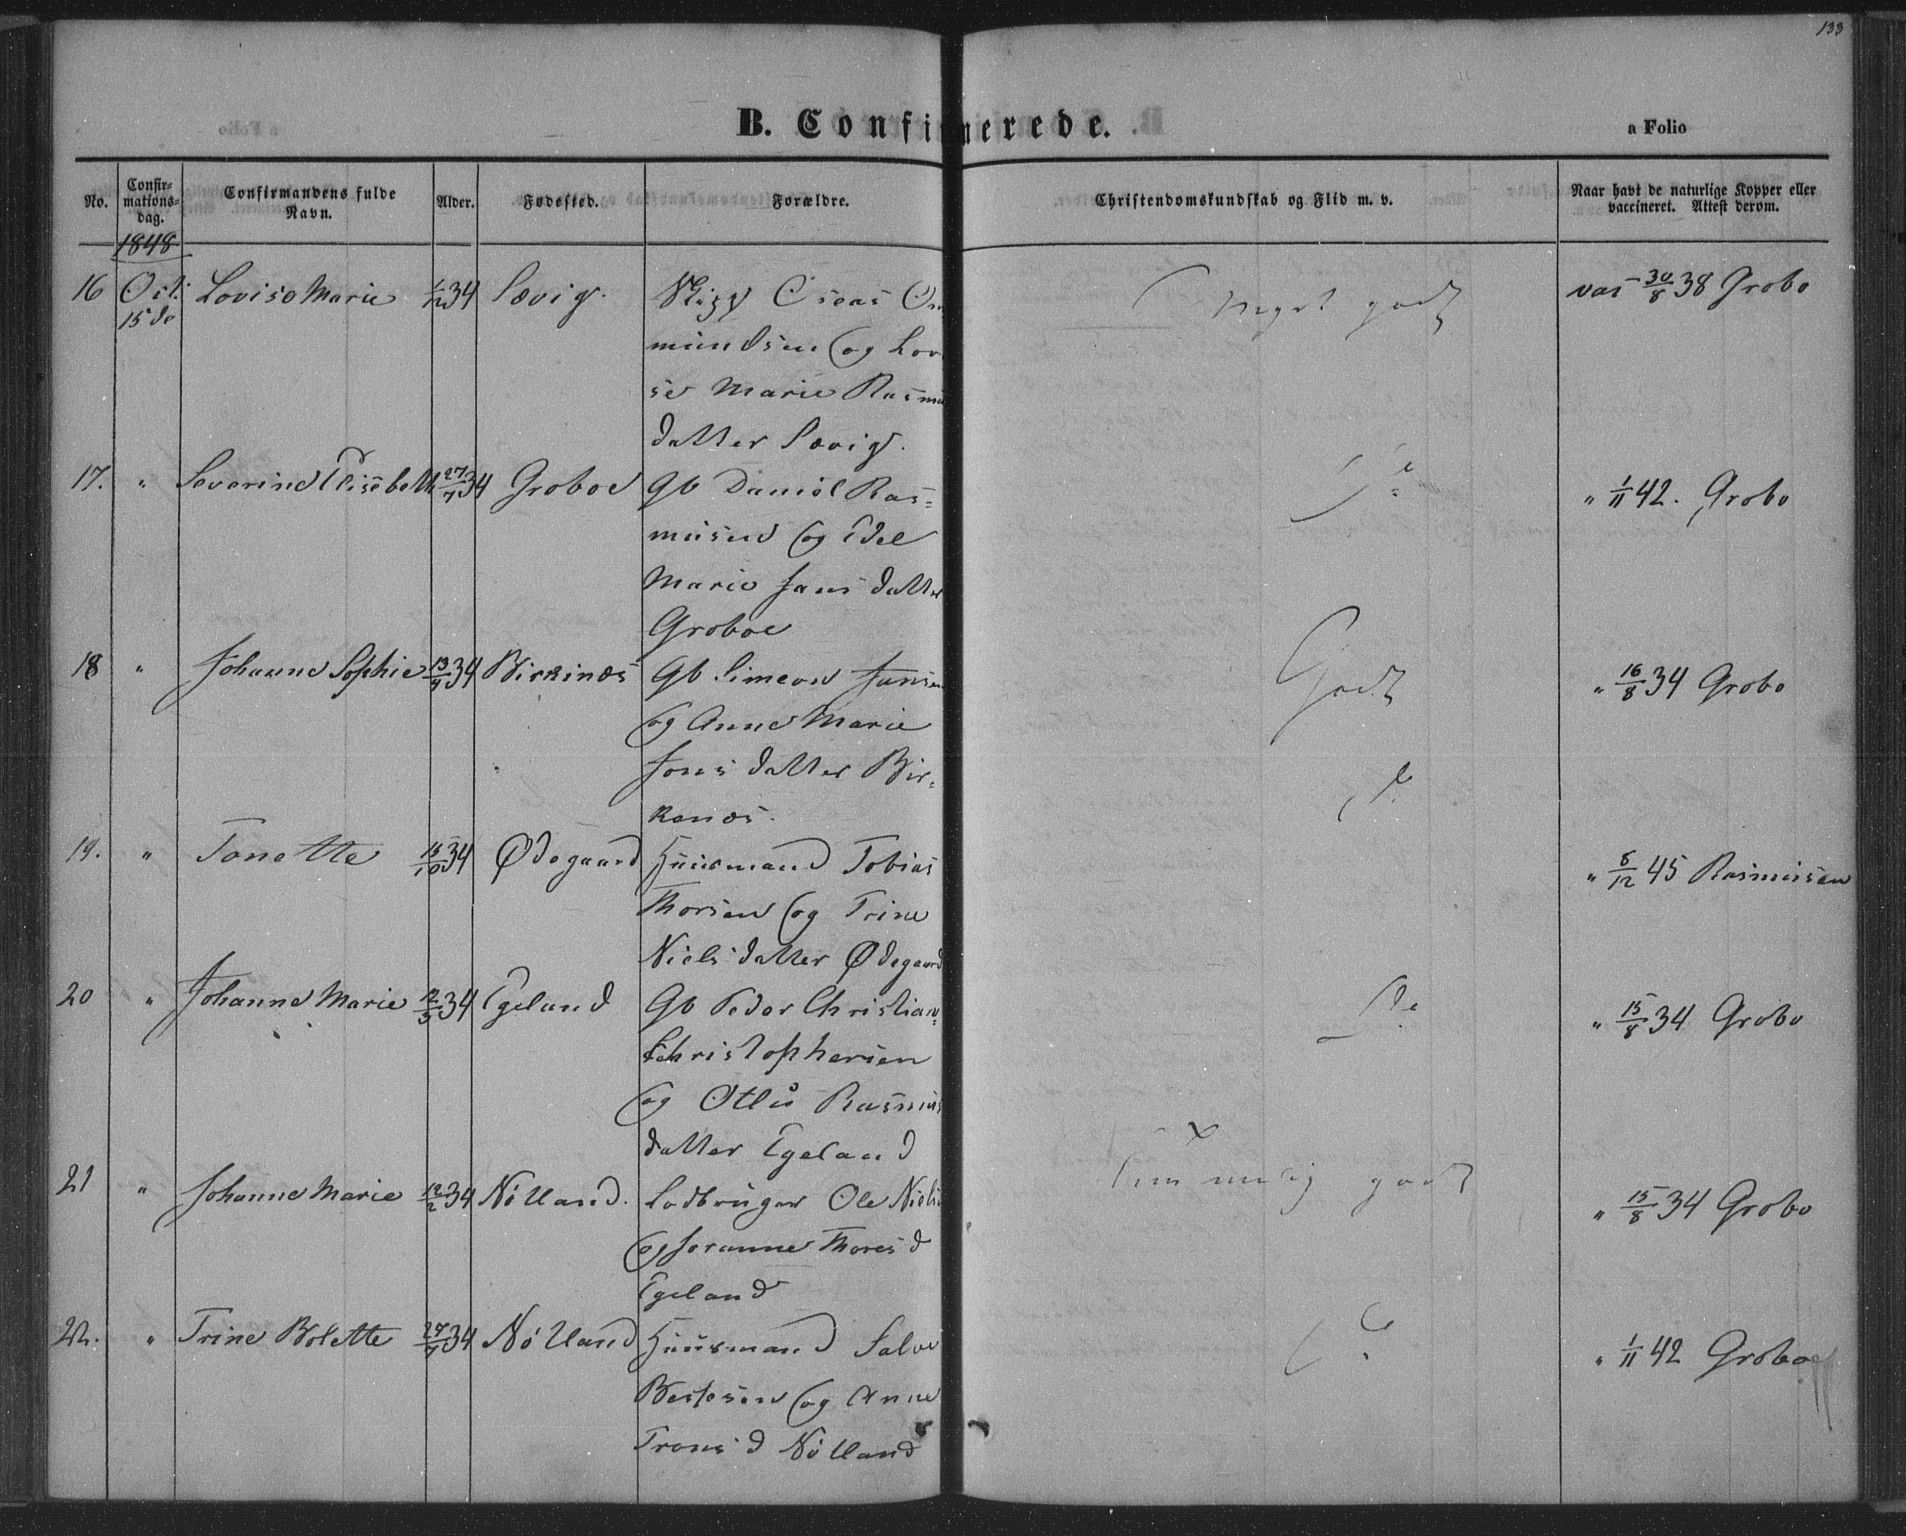 133
B. Confirmerede.
a Folio
No.
Confir-
mations-
dag.
Confirmandens fulde
Navn.
Alder.
Fødested.
Forældre.
Christendomskundskab og Flid m. v.
Naar havt de naturlige Kopper eller
vaccineret. Attest derom.
1848
16 Oct: Lovise Marie 1/12 34 Sævig.
15de
mundsen og Lovi
se Marie Rasmus
datter Sævig.
Meget godt
vac 30/8 38 Grobo
17. " Severine Elisebeth 27/7 34 Groboe Gb Daniel Ras=
musen og Edel
Marie Jans datter
Groboe
" 1/11 42. Grobo
18 " Johanne Sophie 13/4 34 Birkinæs Gb Simeon Jansen
og Anne Marie
Jons datter Bir=
kenæs.
Godt
" 16/8 34 Grobo
19. " Tonette 15/10 34 Ødegaard Huusmand Tobias
Thorsen og Trine
Niels datter Ødegaard
d.
" 6/12 45 Rasmusen
20 " Johanne Marie 12/5 34 Egeland Gb Peder Christian
Christophersen
og Rasmus
datter Egeland
De
" 15/8 34 Grobo
21 " Johanne Marie 12/2 34 Nötland. Lodbruger Ole Niels
og Joranne Thores d
Egeland
Temmelig godt
" 15/8 34 Grobo
22. " Trine Bolette 27/7 34 Nötland Huusmand Salve
og Anne
Trons d Nötland
" 1/11 42 Groboe